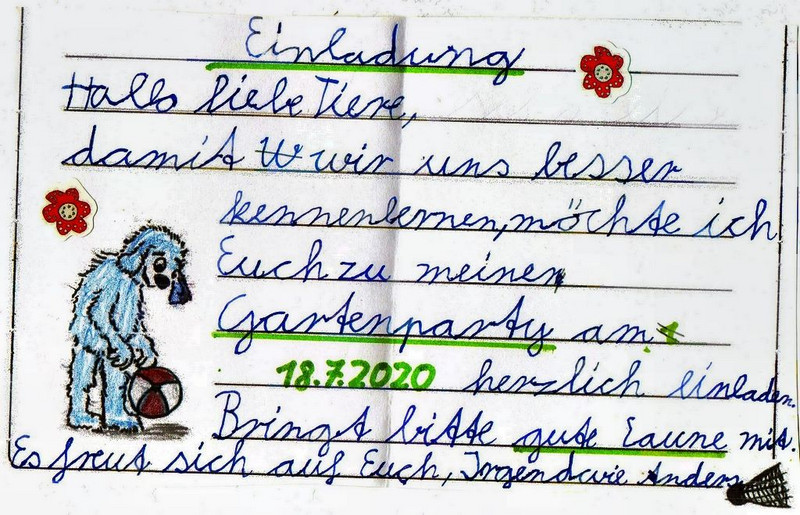 Einladung
Hallo liebe Tiere,
damit wir uns besser
kennenlernen, möchte ich
Euch zu meinen
Gartenparty am
18.7.2020 herzlich einladen.
Bringt bitte gute Laune mit.
Es freut sich auf Euch, Irgendwie Anders